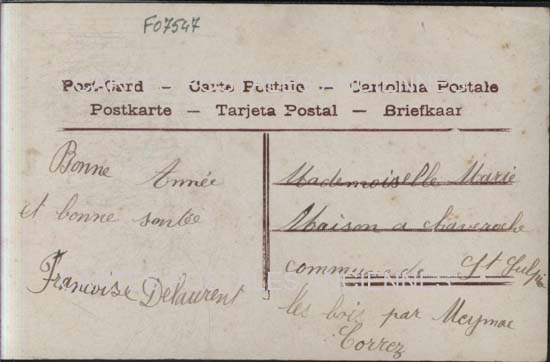 F07547
Post-Card – Carte Postale – Cartolina Postale
Postkarte – Tarjeta Postal – Briefkaar
Bonne Année
et bonne santée
Francoise Delaurent
Mademoiselle Marie
Maison a chaveroche
commune de St Sulpi
les bois par Meymac
Correz